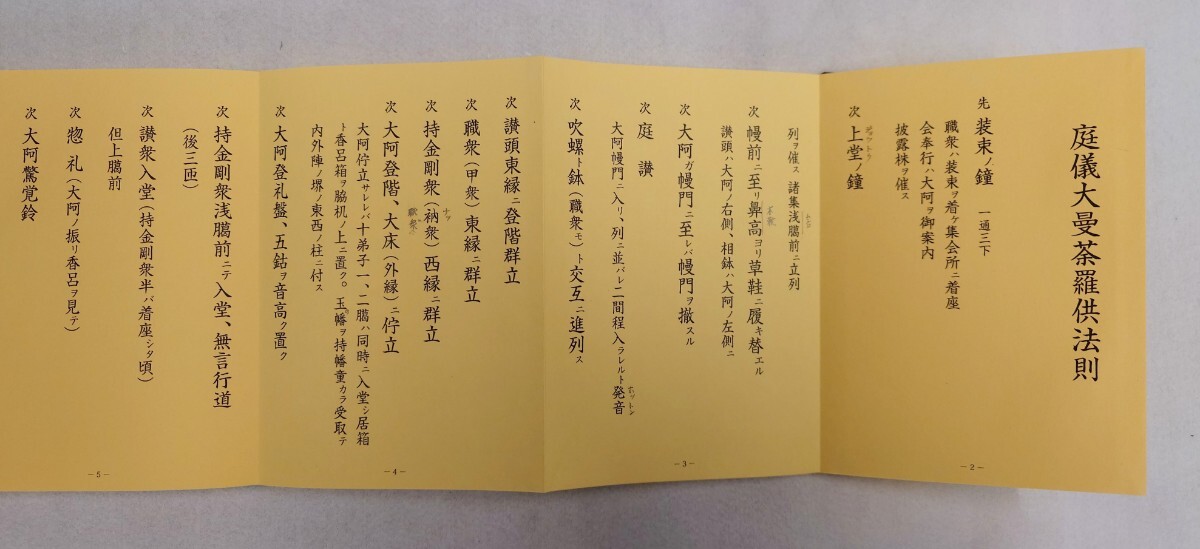 庭儀大曼荼羅供法則
先 装束ノ鐘 一通三下
職衆ハ装束ヲ着ケ集会所ニ着座
会奉行ハ大阿ヲ御案内
披露株ヲ催ス
次 上堂ノ鐘
-2-
列ヲ催ス 諸集浅臈前ニ立列
次 幔前ニ至リ鼻高ヨリ草鞋ニ履キ替エル
讃頭ハ大阿ノ右側、相鉢ハ大阿ノ左側ニ
次 大阿ガ幔門ニ至レバ幔門ヲ撤スル
次 庭讃
大阿幔門ニ入リ、列ニ並バレ二間程入ラレルト発音
ホットン
次 吹螺ト鉢(職衆モ)ト交互ニ進列ス
-3-
次 讃頭東縁ニ登階群立
次 職衆(甲衆)東縁ニ群立
次 持金剛衆(衲衆)西縁ニ群立
次 大阿登階、大床(外縁)ニ佇立
大阿佇立サレレバ十弟子一、二臈ハ同時ニ入堂シ居箱
ト香呂箱ヲ脇机ノ上ニ置ク。玉幡ヲ持幡童カラ受取テ
内外陣ノ堺ノ東西ノ柱ニ付ス
次 大阿登礼盤、五鈷ヲ音高ク置ク
-4-
次 持金剛衆浅臈前ニテ入堂、無言行道
(後三匝)
次 讃衆入堂(持金剛衆半バ着座シタ頃)
但上臈前
次 惣礼(大阿ノ振リ香呂ヲ見テ)
次 大阿驚覚鈴
-5-